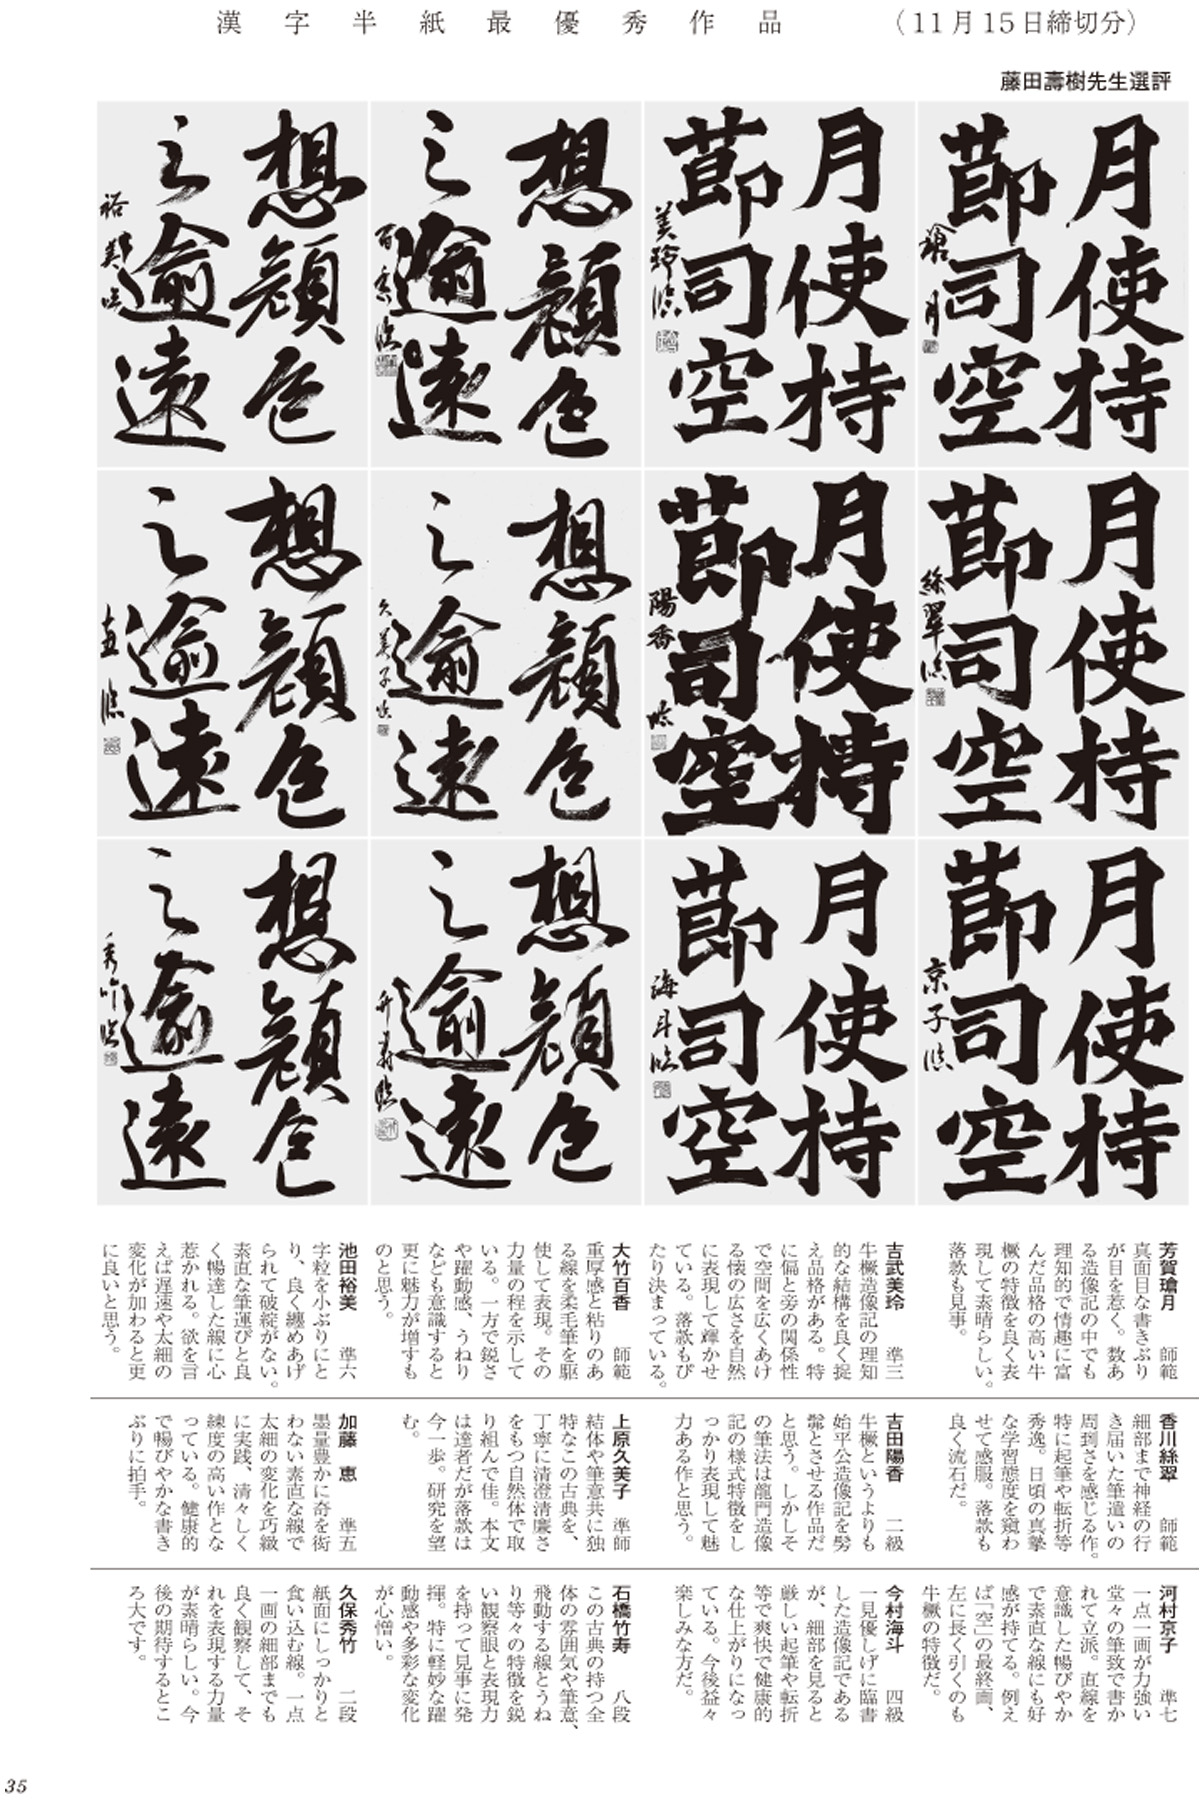 漢字半紙最優秀作品　（11月15日締切分）
藤田壽樹先生選評
月使持
節司空
瑲月
月使持
節司空
美玲臨
想顔色
之逾遠
百香臨
想顔色
之逾遠
裕美臨
月使持
節司空
絲翠臨
月使持
節司空
陽香臨
想顔色
之逾遠
久美子臨
想顔色
之逾遠
恵臨
月使持
節司空
京子臨
月使持
節司空
海斗臨
想顔色
之逾遠
竹寿臨
想顔色
之逾遠
秀竹臨
芳賀瑲月　師範
真面目な書きぶり
が目を惹く。数あ
る造像記の中でも
理知的で情趣に富
んだ品格の高い牛
橛の特徴を良く表
現して素晴らしい。
落款も見事。
吉武美玲　準三
牛橛造像記の理知
的な結構を良く捉
え品格がある。特
に偏と旁の関係性
で空間を広くあけ
る懐の広さを自然
に表現して輝かせ
ている。落款もぴ
たり決まっている。
大竹百香　師範
重厚感と粘りのあ
る線を柔毛筆を駆
使して表現。その
力量の程を示して
いる。一方で鋭さ
や躍動感、うねり
なども意識すると
更に魅力が増すも
のと思う。
池田裕美　準六
字粒を小ぶりにと
り、良く纏めあげ
られて破綻がない。
素直な筆運びと良
く暢達した線に心
惹かれる。欲を言
えば遅速や太細の
変化が加わると更
に良いと思う。
香川絲翠　師範
細部まで神経の行
き届いた筆遣いの
周到さを感じる作。
特に起筆や転折等
秀逸。日頃の真摯
な学習態度を窺わ
せて感服。落款も
良く流石だ。
吉田陽香　二級
牛橛というよりも
始平公造像記を髣
髴とさせる作品だ
と思う。しかしそ
の筆法は龍門造像
記の様式特徴をし
っかり表現して魅
力ある作と思う。
上原久美子　準師
結体や筆意共に独
特なこの古典を、
丁寧に清澄清廉さ
をもつ自然体で取
り組んで佳。本文
は達者だが落款は
今一歩。研究を望
む。
加藤　恵　準五
墨量豊かに奇を衒
わない素直な線で
太細の変化を巧緻
に実践、清々しく
練度の高い作とな
っている。健康的
で暢びやかな書き
ぶりに拍手。
河村京子　準七
一点一画が力強い
堂々の筆致で書か
れて立派。直線を
意識した暢びやか
で素直な線にも好
感が持てる。例え
ば「空」の最終画、
左に長く引くのも
牛橛の特徴だ。
今村海斗　四級
一見優しげに臨書
した造像記である
が、細部を見ると
厳しい起筆や転折
等で爽快で健康的
な仕上がりになっ
ている。今後益々
楽しみな方だ。
石橋竹寿　八段
この古典の持つ全
体の雰囲気や筆意、
飛動する線とうね
り等々の特徴を鋭
い観察眼と表現力
を持って見事に発
揮。特に軽妙な躍
動感や多彩な変化
が心憎い。
久保秀竹　二段
紙面にしっかりと
食い込む線。一点
一画の細部までも
良く観察して、そ
れを表現する力量
が素晴らしい。今
後の期待するとこ
ろ大です。
35